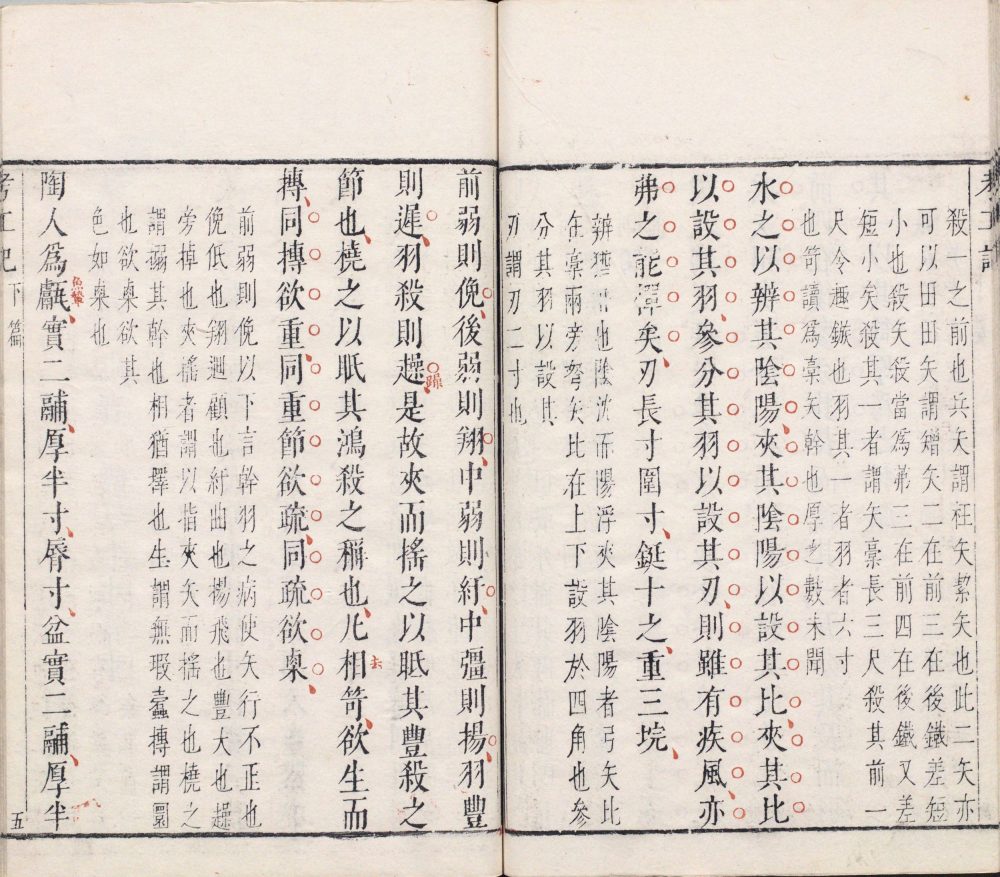 考工記
殺一之前也兵矢謂枉矢絜矢也此二矢亦
可以田田矢謂矰矢二在前三在後鐵差短
小也殺矢殺當爲茀三在前四在後鐵又差
短小矢殺其一者謂矢槀長三尺殺其前一
尺令趣鏃也羽其一者羽者六寸
也笴讀爲槀矢幹也厚之數未聞
水之以辨其陰陽夾其陰陽以設其比夾其比
以設其羽參分其羽以設其刃則雖有疾風亦
弗之能憚矣刃長寸圍寸鋌十之重三垸
辨猶正也陰沈而陽浮夾其陰陽者弓矢比
在槀兩旁弩矢比在上下設羽於四角也參
分其羽以設其
刃謂刃二寸也
前弱則俛後弱則翔中弱則紆中彊則揚羽豐
則遲羽殺則趮是故夾而搖之以眂其豐殺之
躁
節也橈之以眂其鴻殺之稱也凡相笴欲生而
去
摶同摶欲重同重節欲疏同疏欲㮚
前弱則俛以下言幹羽之病使矢行不正也
俛低也翔迴顧也紆曲也揚飛也豐大也趮
旁掉也夾搖者謂以指夾矢而搖之也橈之
謂搦其幹也相猶擇也生謂無瑕蠹摶謂圜
也欲㮚欲其
色如㮚也
陶人爲甗實二鬴厚半寸脣寸盆實二鬴厚半
考工記下 篇 五